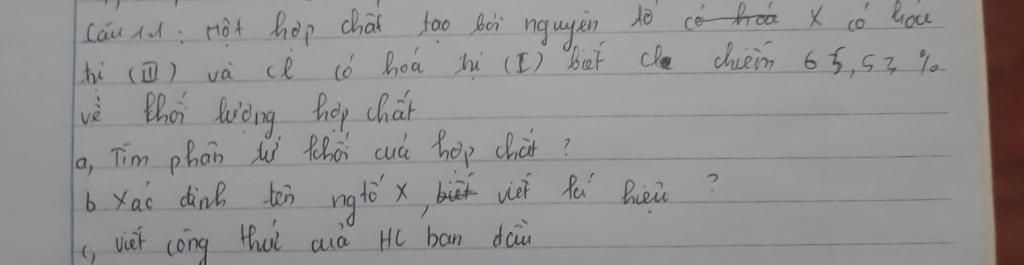 Câu 11: Một hợp chất tạo bởi nguyên tố có hoá X có hóa
trị (III) và cl có hoá trị (I) biết cl chiếm 65,53 %
về khối lượng hợp chất
a, Tìm phân tử khối của hợp chất ?
b Xác định tên ngtố X, biết viết kí hiệu ?
c, viết công thức của HC ban đầu